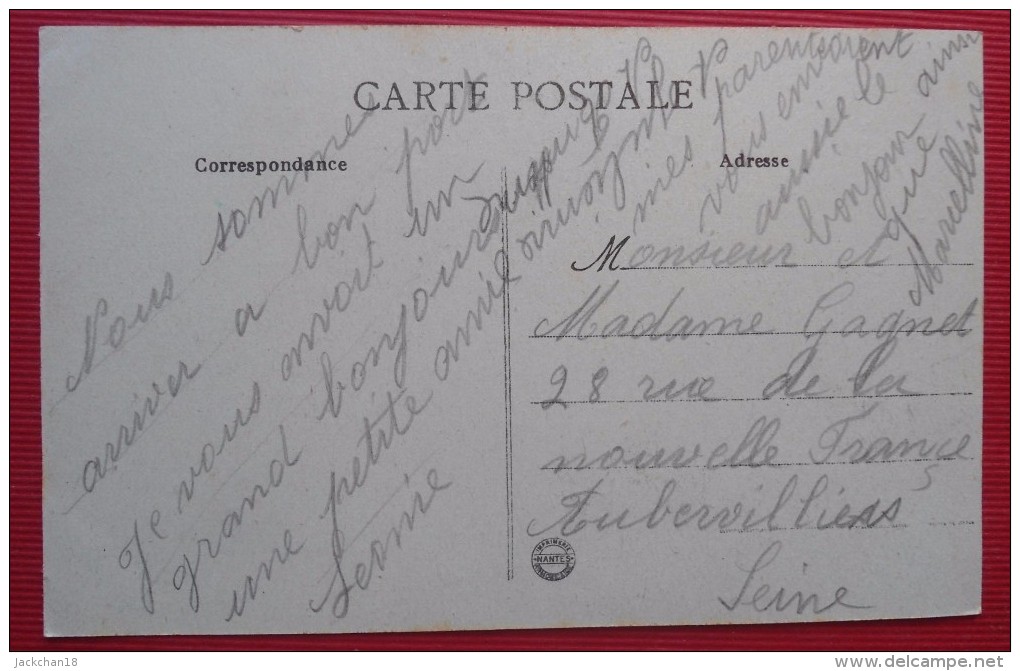 CARTE POSTALE
Correspondance
Adresse
Nous sommes
arriver a bon port
Je vous anvoit un
grand bonjour
une petite amie
Leonie
mes parents
vous envoient
aussie le
bonjour ainsi
que Marcelline
Monsieur et
Madame Gagnet
28 rue de la
nouvelle France
Aubervilliers
Seine
IMPRIMERIE
NANTES
Jackchan18
delcampe.net